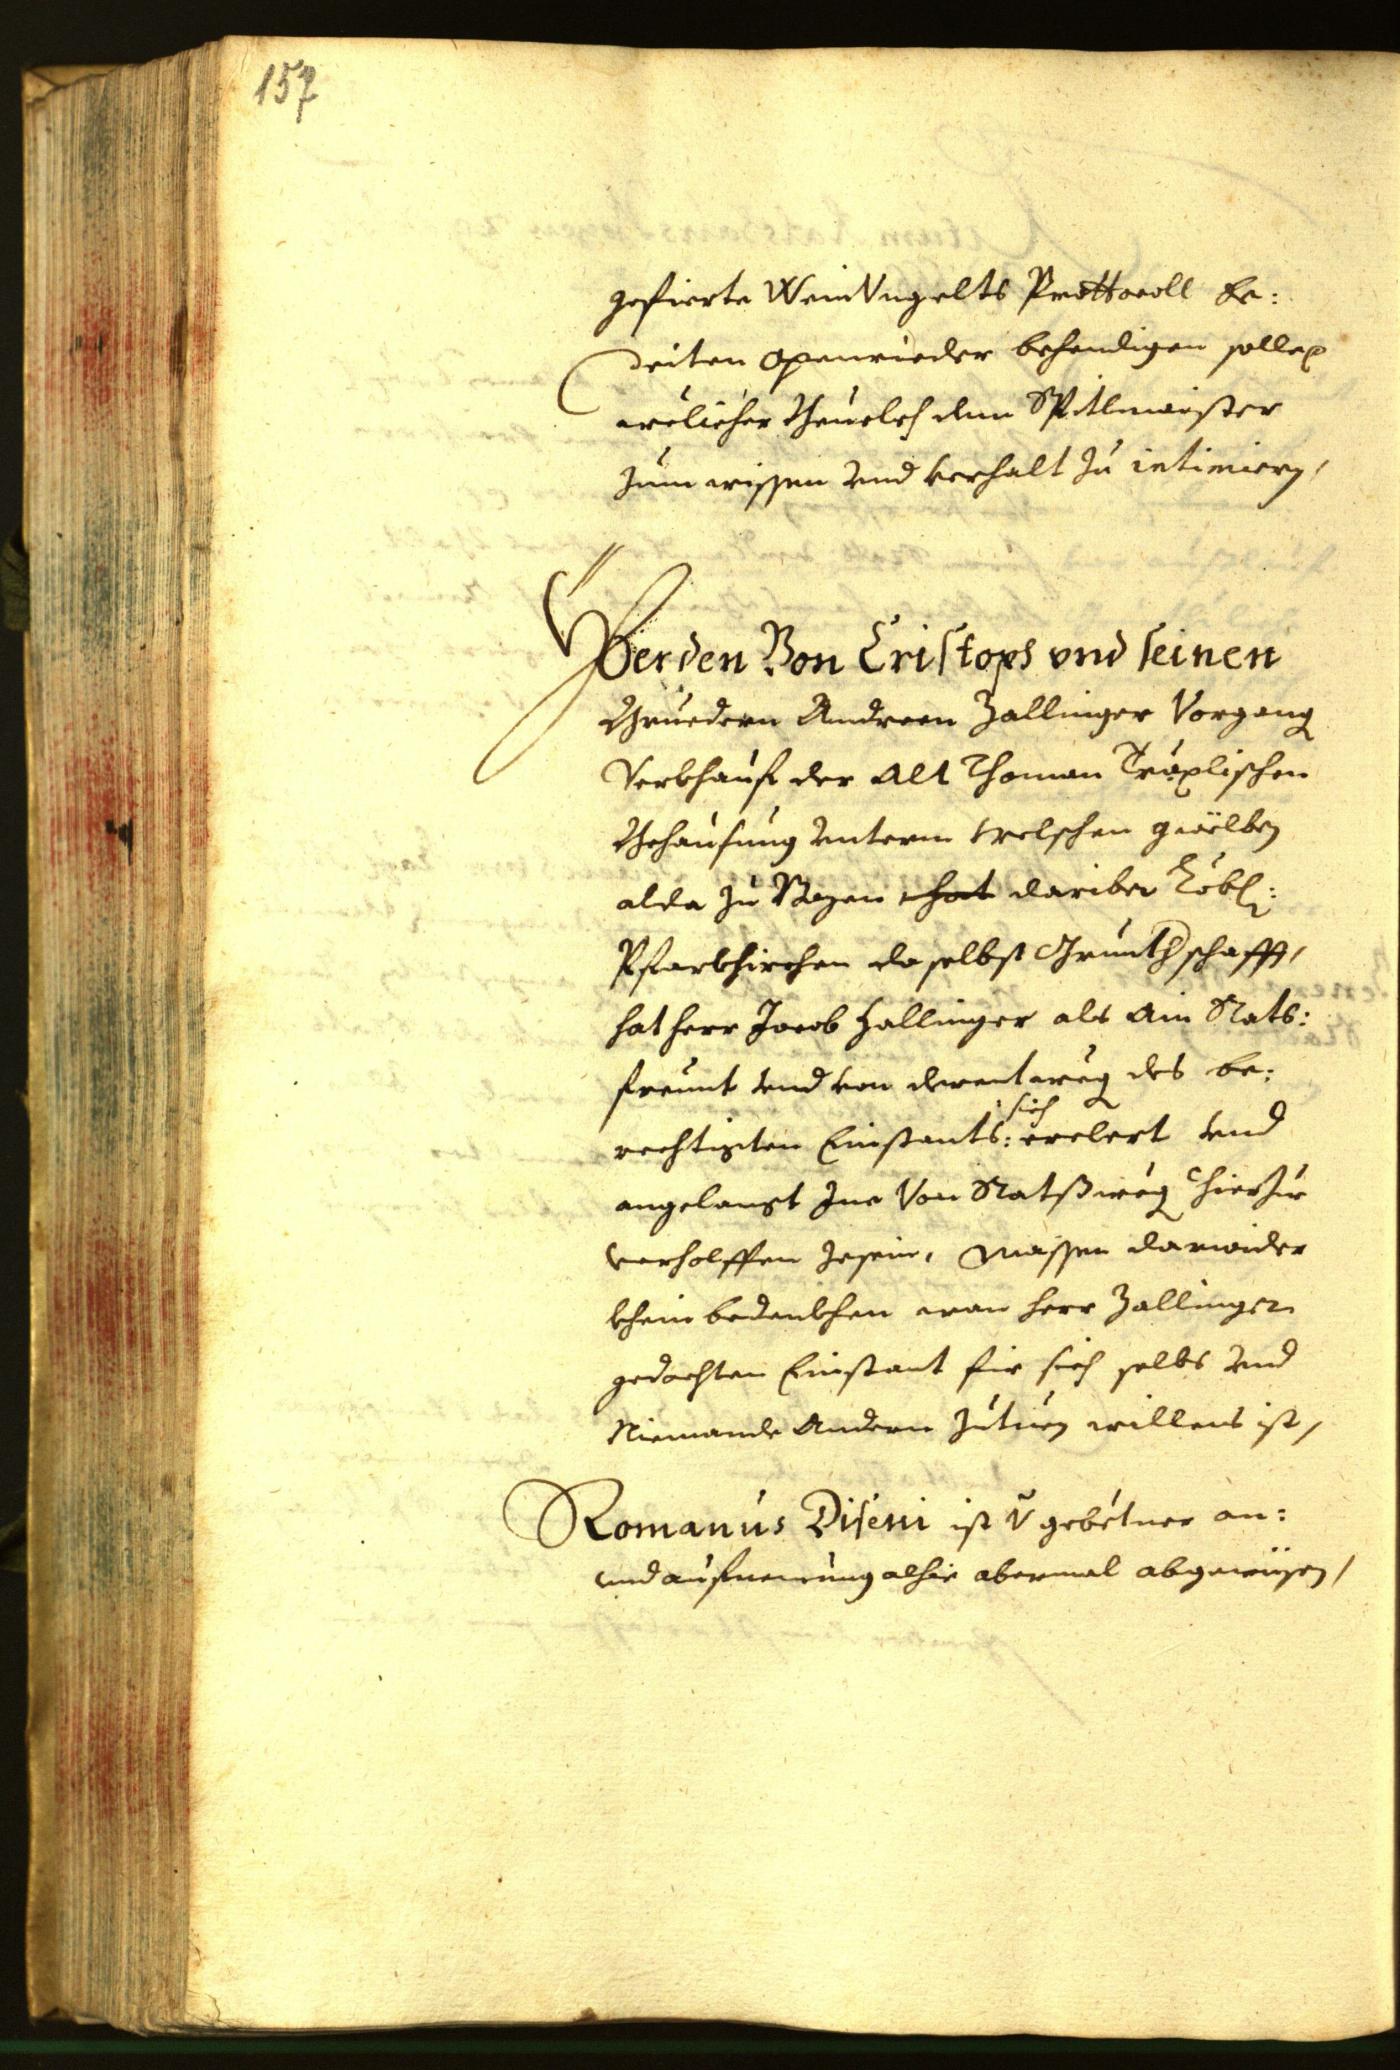 157
gefierte WeinVngelts Prottocoll be:
deiten openrieder behendigen solle,
welicher Beuelch dem Spitlmaister
zum wissen vnd verhalt zu intimiern,
Werden Von Cristoph vnd seinen
Bruedern Andreen Zallinger Vorgang
Verkhauf der Alt Thoman Träxlischen
Behausung vnterm welschen gwelben
alda zu Bozen hat dariber Löbl:
Pfarkhirchen daselbst Grunthschafft,
hat herr Jacob Zallinger als Ain Rats:
freunt vnd von derentweg des be:
rechtigten Einstants: sich erclert vnd
angelangt Ine Von Ratßweg hierzue
verholffen zesein, Massen darwider
khein bedenkhen wan herr Zallinger
gedachten Einstant fir sich selbs vnd
Niemands Andern zutuen willens ist,
Romanus Diseni ist v̈ gebetner an:
vnd aufnemung alhie abermal abgewisen,